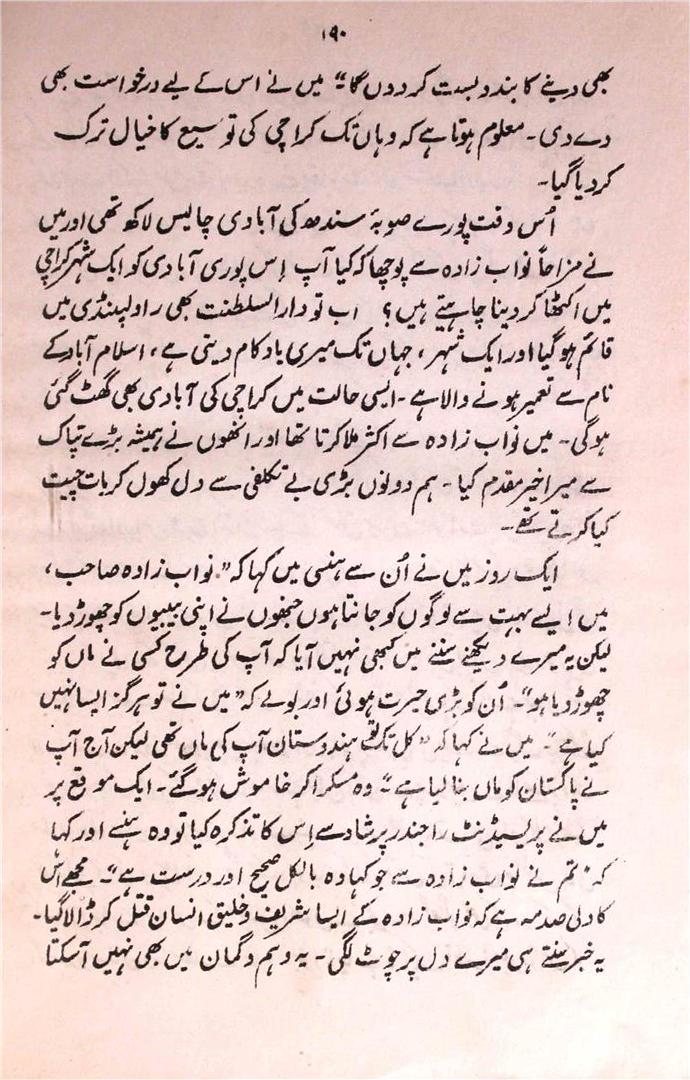 ۱۹۰
بھی دینے کا بندوبست کر دوں گا" میں نے اس کے لیے درخواست بھی
دے دی۔ معلوم ہوتا ہے کہ وہاں تک کراچی کی توسیع کا خیال ترک
کر دیا گیا۔
اُس وقت پورے صوبۂ سندھ کی آبادی چالیس لاکھ تھی اور میں
نے مزاحاً نواب زادہ سے پوچھا کہ کیا آپ اِس پوری آبادی کو ایک شہر کراچی
میں اکٹھا کر دینا چاہتے ہیں؟ اب تو دارالسلطنت بھی راولپنڈی میں
قائم ہو گیا اور ایک شہر، جہاں تک میری یاد کام دیتی ہے، اسلام آباد کے
نام سے تعمیر ہونے والا ہے۔ ایسی حالت میں کراچی کی آبادی بھی گھٹ گئی
ہوگی۔ میں نواب زادہ سے اکثر ملا کرتا تھا اور انھوں نے ہمیشہ بڑے تپاک
سے میرا خیر مقدم کیا۔ ہم دونوں بڑی بے تکلفی سے دل کھول کر بات چیت
کیا کرتے تھے۔
ایک روز میں نے اُن سے ہنسی میں کہا کہ "نواب زادہ صاحب،
میں ایسے بہت سے لوگوں کو جانتا ہوں جنھوں نے اپنی بیبیوں کو چھوڑ دیا۔
لیکن یہ میرے دیکھنے سننے میں کبھی نہیں آیا کہ آپ کی طرح کسی نے ماں کو
چھوڑ دیا ہو"۔ اُن کو بڑی حیرت ہوئی اور بولے کہ "میں نے تو ہرگز ایسا نہیں
کیا ہے"۔ میں نے کہا کہ "کل تک تو ہندوستان آپ کی ماں تھی لیکن آج آپ
نے پاکستان کو ماں بنا لیا ہے"۔ وہ مسکرا کر خاموش ہو گئے۔ ایک موقع پر
میں نے پریسیڈنٹ راجندر پرشاد سے اِس کا تذکرہ کیا تو وہ ہنسے اور کہا
کہ "تم نے نواب زادہ سے جو کہا وہ بالکل صحیح اور درست ہے"۔ مجھے اس
کا دلی صدمہ ہے کہ نواب زادہ کے ایسا شریف و خلیق انسان قتل کر ڈالا گیا۔
یہ خبر سنتے ہی میرے دل پر چوٹ لگی۔ یہ وہم و گمان میں بھی نہیں آسکتا